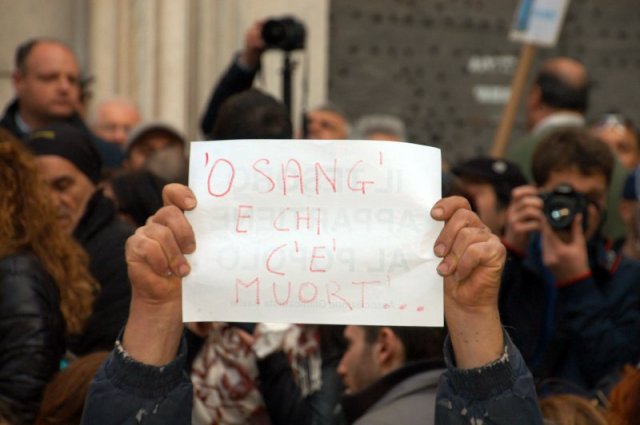 'O SANG'
E CHI
C'E'
MUORT'...